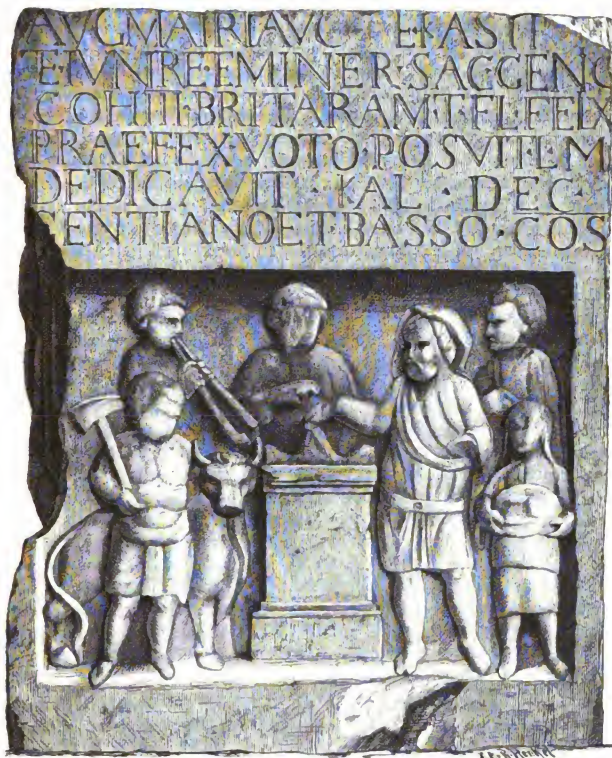 AVG MATRI AVG ET CASTR
ET IVNI RE ET MINER SAC GENIO
COH III BRIT AR AM·T·FL·FELIX
PRAEF EX·VOTO POSVIT·L·M
DEDICAVIT · KAL · DEC ·
GENTIANO ET BASSO·COS